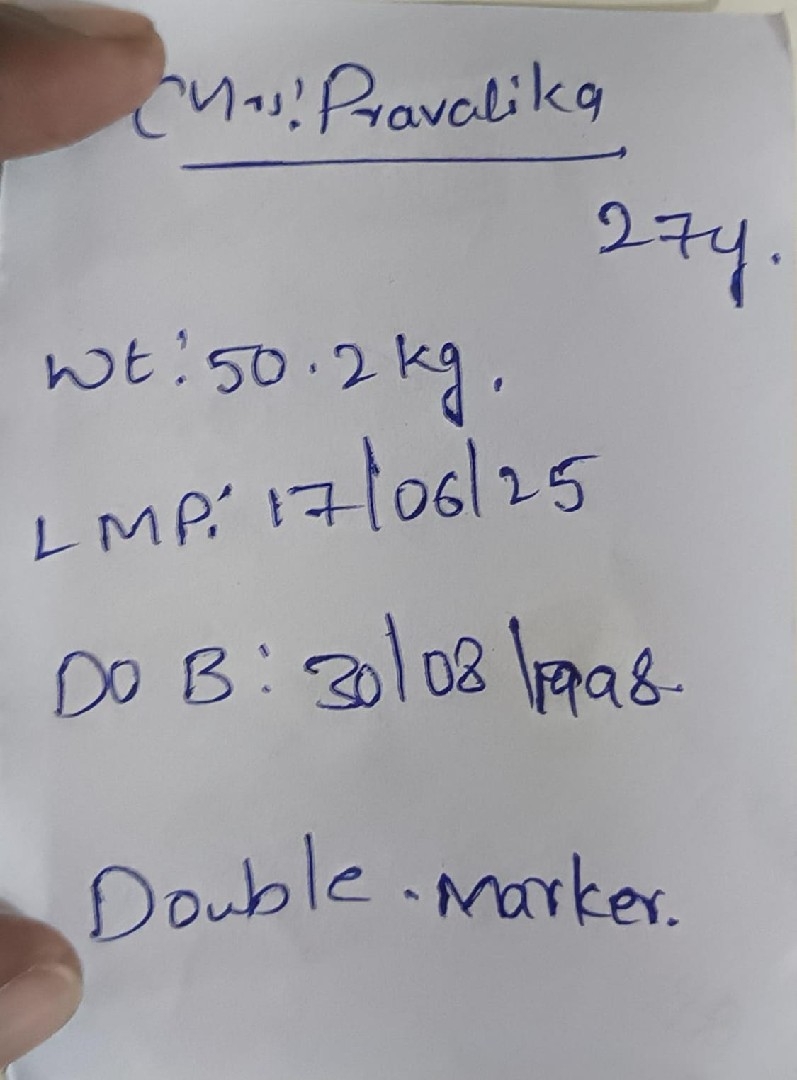 Mrs: Pravalika
27y.
Wt: 50.2 kg.
LMP: 17/06/25
DOB: 30/08/1998
Double. Marker.